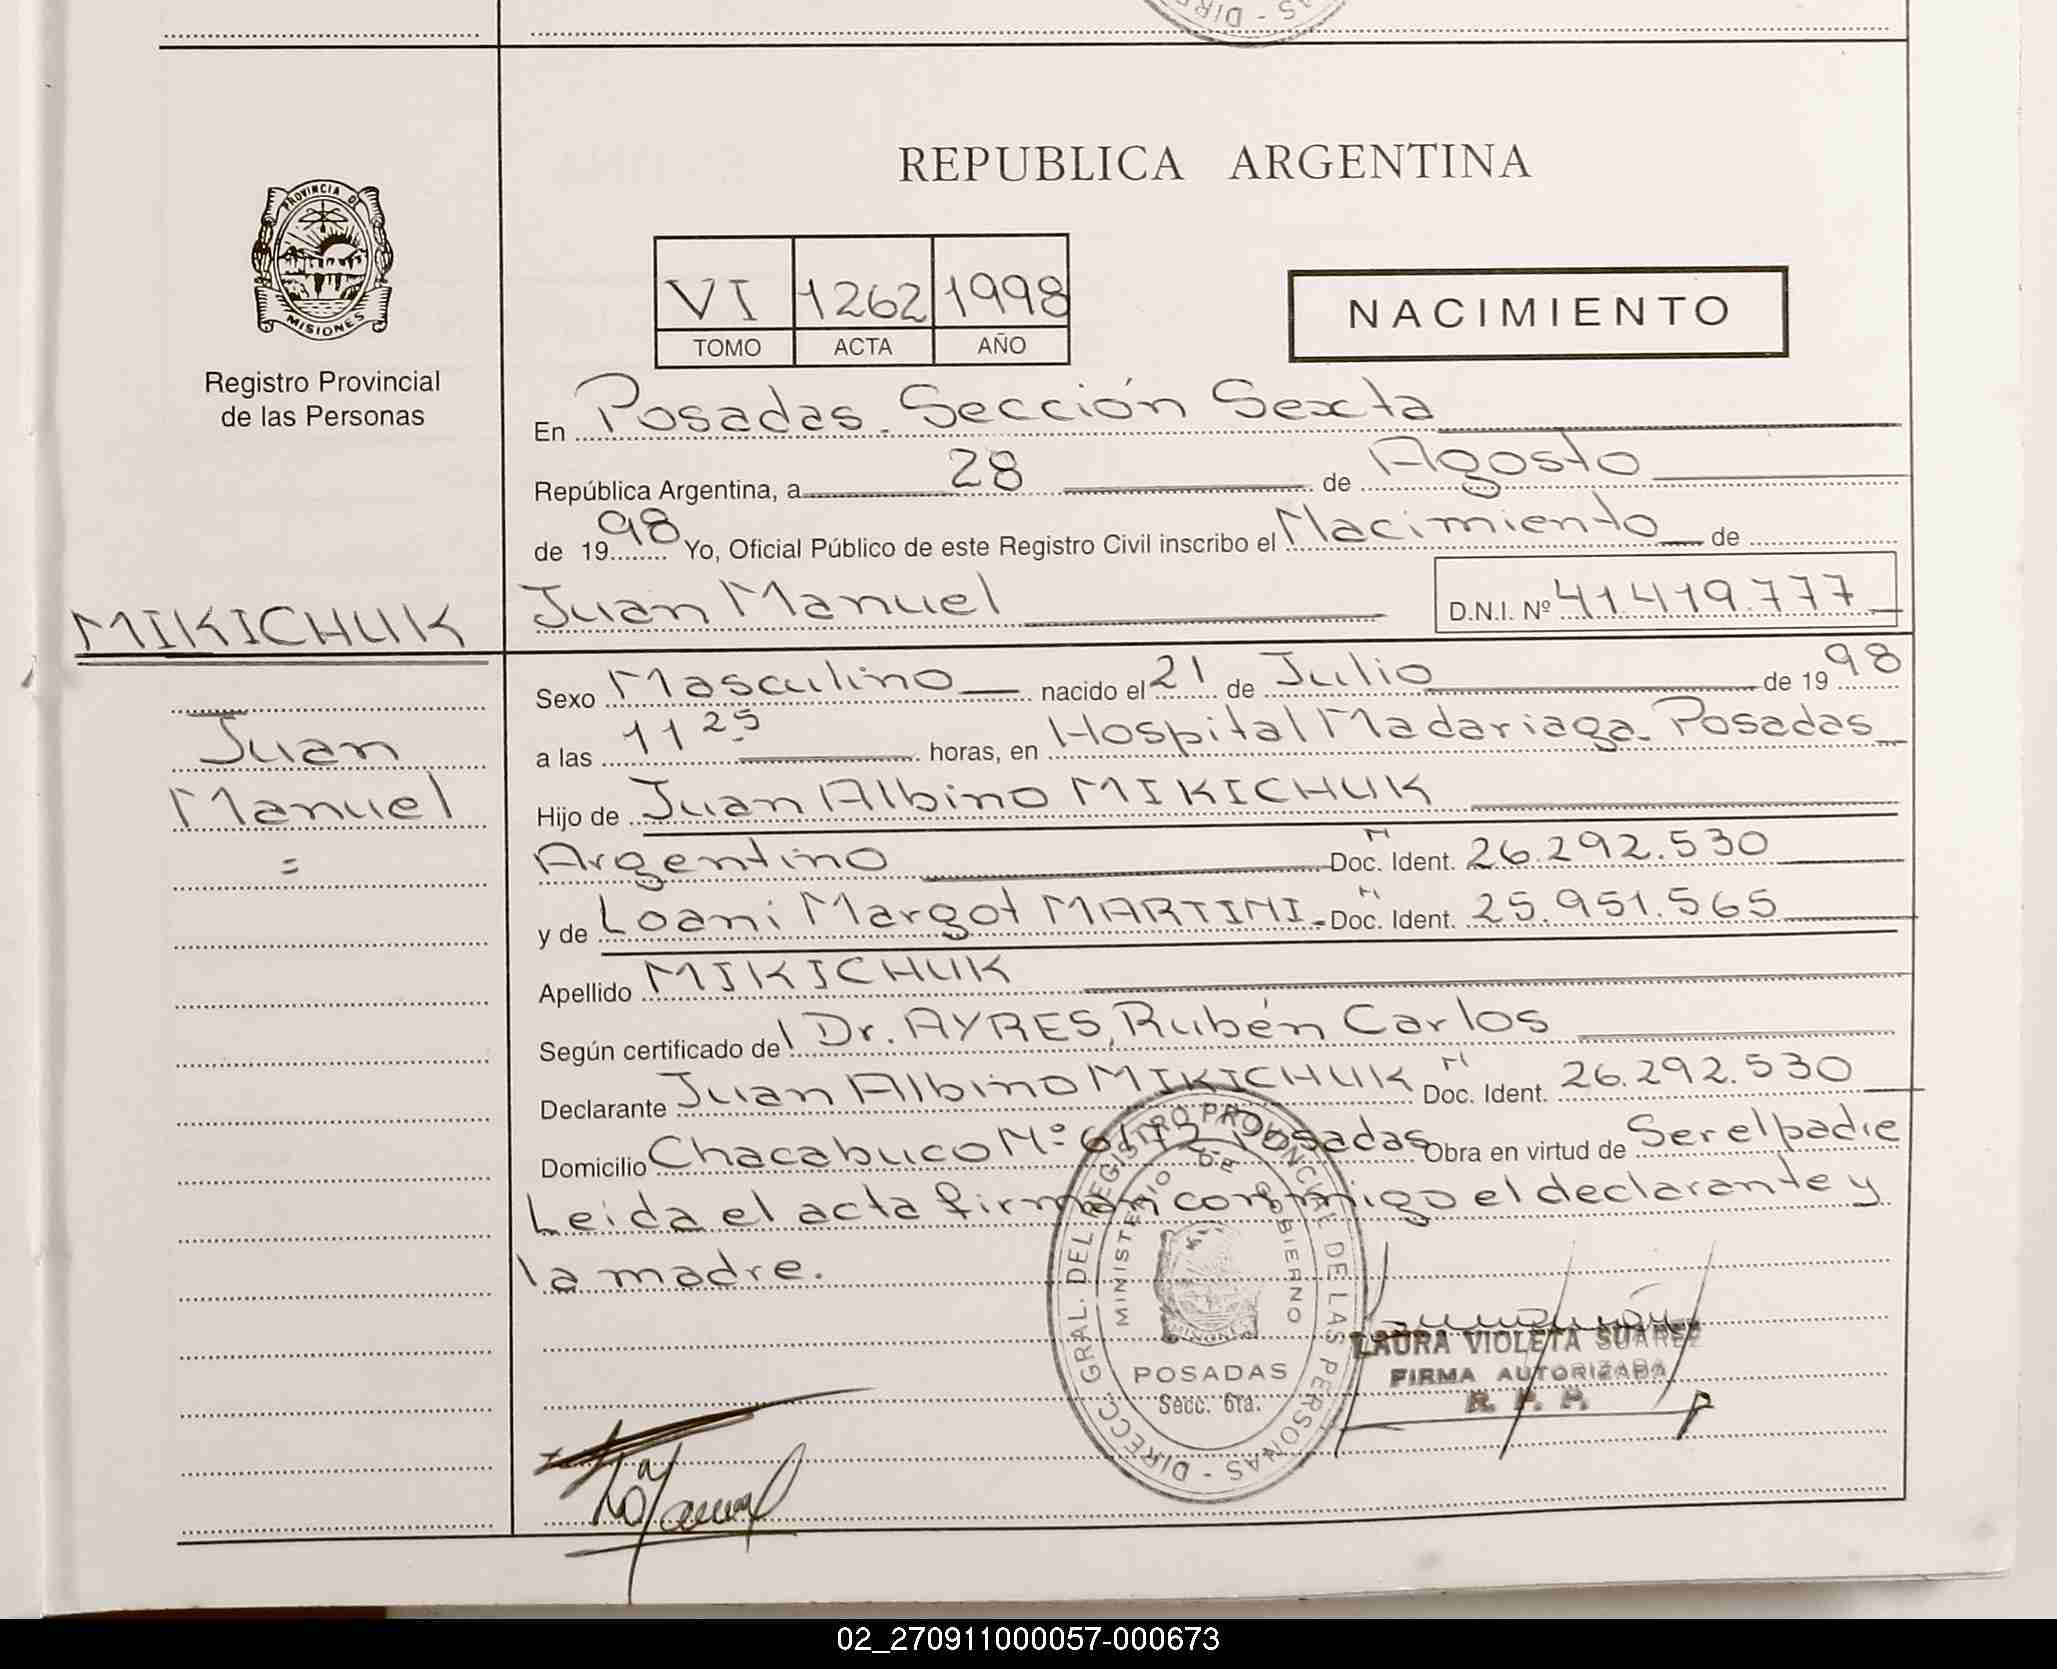 REPUBLICA ARGENTINA
PROVINCIA DE
MISIONES
Registro Provincial
de las Personas
VI 1262 1998
TOMO ACTA AÑO
NACIMIENTO
En Posadas. Sección Sexta
República Argentina, a 28 de Agosto
de 1998 Yo, Oficial Público de este Registro Civil inscribo el Nacimiento de
MIKICHUK
Juan Manuel D.N.I. Nº 41.419.777
Sexo Masculino nacido el 21 de Julio de 1998
Juan
Manuel
=
a las 11 25 horas, en Hospital Madariaga. Posadas
Hijo de Juan Albino MIKICHUK
Argentino Doc. Ident. 26.292.530
y de Loani Margot MARTINI Doc. Ident. 25.951.565
Apellido MIKICHUK
Según certificado del Dr. AYRES, Rubén Carlos
Declarante Juan Albino MIKICHUK Doc. Ident. 26.292.530
Domicilio Chacabuco Nº Posadas Obra en virtud de Ser el padre
Leida el acta firman conmigo el declarante y
la madre.
DIRECC. GRAL. DEL REGISTRO PROVINCIAL DE LAS PERSONAS
MINISTERIO DE GOBIERNO
POSADAS
Secc. 6ta.
LAURA VIOLETA SUAREZ
FIRMA AUTORIZADA
R. P. P.
02_270911000057-000673